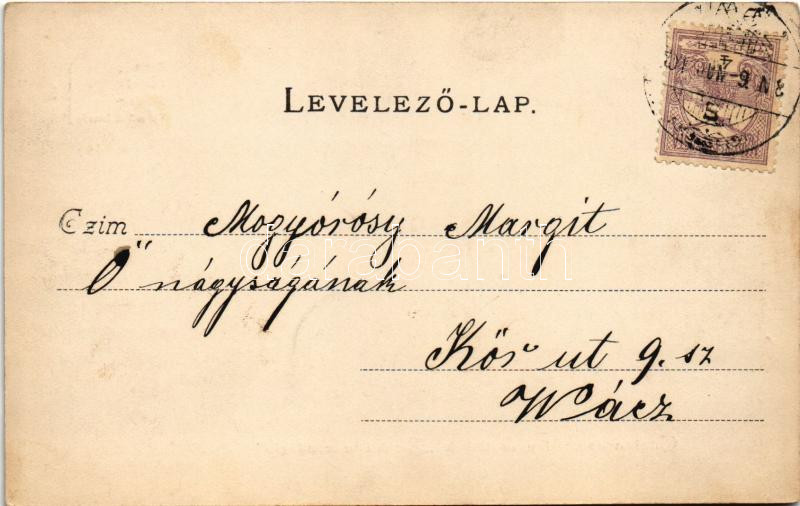 LEVELEZŐ-LAP.
Czim Mogyórósy Margit
Ő nágyságának
Kör ut 9. sz
Wácz
darabanth